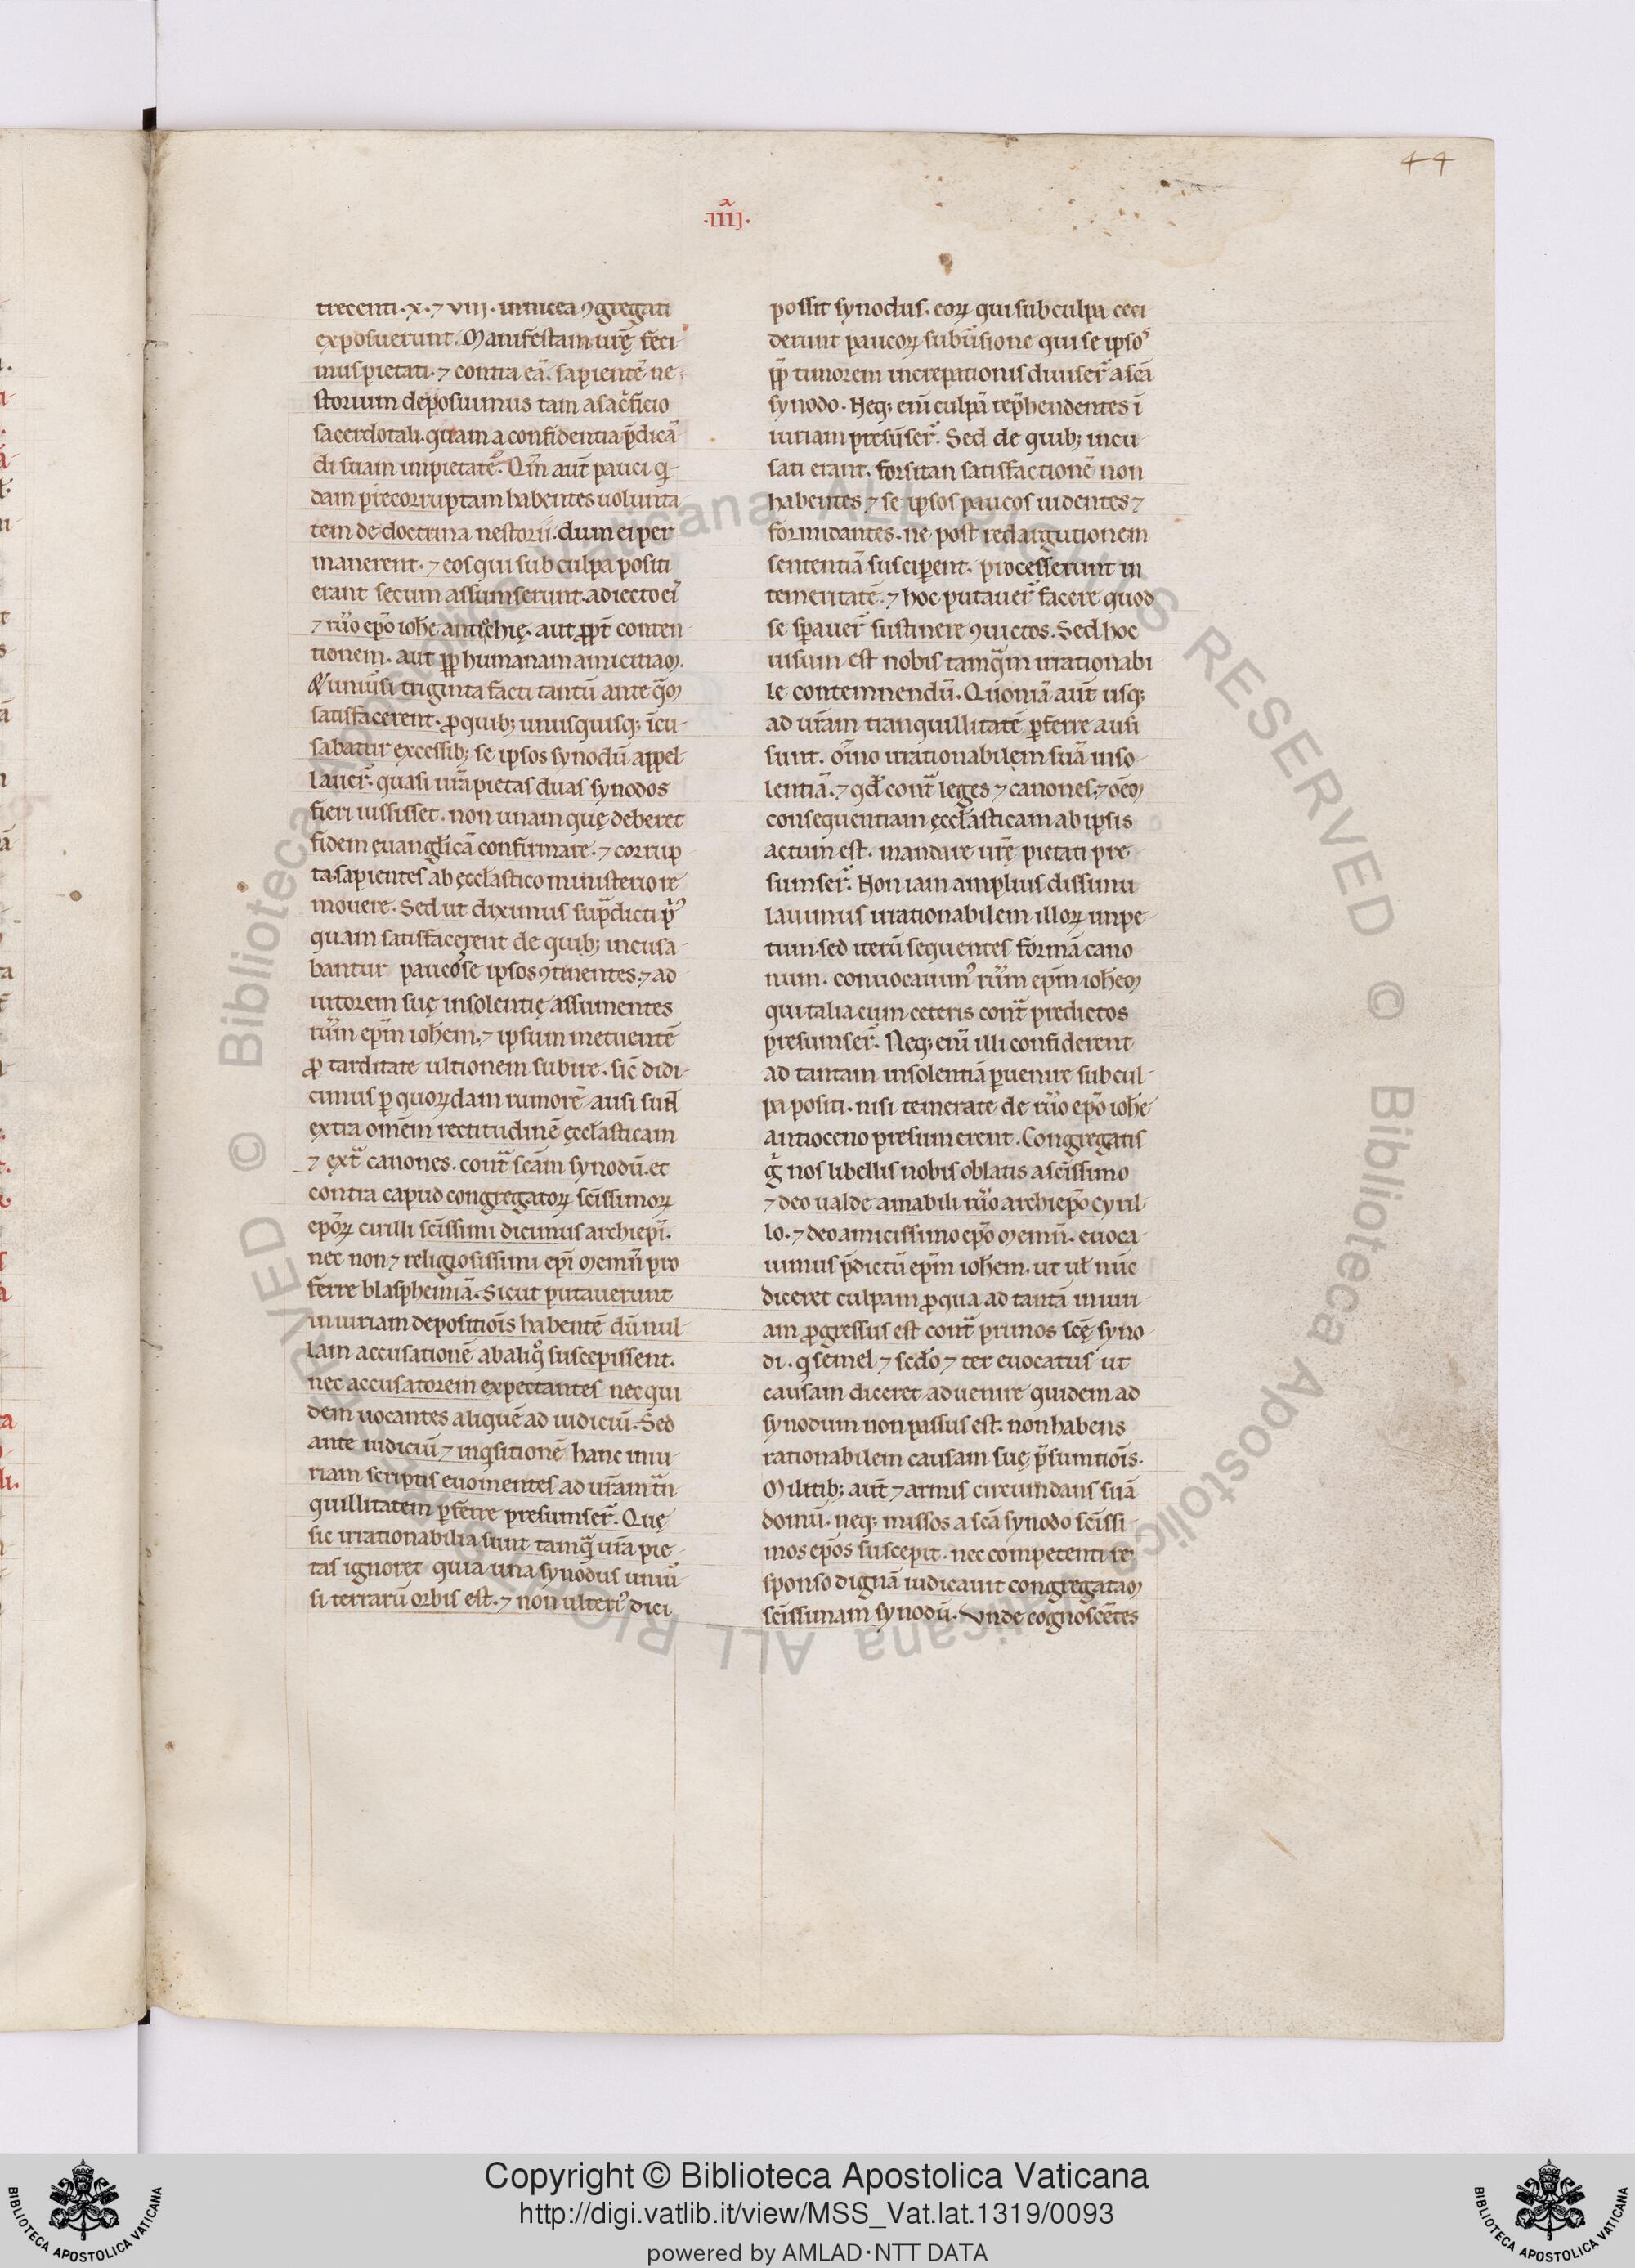 44
·IIIIª·
trecenti·x·⁊ viij· in nicea ꝯgregati
exposuerunt. Manifestam ur̄ę feci
mus pietati·⁊ contra eā. sapientē ne
storium deposuimus tam a sac̄rficio
sacerdotali. quam a confidentia p̄dicā
di suam impietatē. Qm̄ aut̄ pauci qi
dam precorruptam habentes uolunta
tem de doctrina nestorii. dum ei per
manerent. ⁊ eos qui sub culpa positi
erant secum assumserunt. adiecto ei
⁊ rūo ep̄o ioh̄e antiochię. aut ꝓpt̄ conten
tionem. aut ꝓp̄ humanam amicitiaꝫ.
& uniūsi triginta facti tantū ante qāꝫ
satisfacerent. ꝓ quib; unusquisq; īcu
sabatur excessib; se ipsos synodū appel
lauer̄. quasi ur̄a pietas duas synodos
fieri iussisset. non unam quę deberet
fidem euangl̄icā confirmare. ⁊ corrup
ta sapientes ab ęccl̄astico ministerio re
mouere. Sed ut diximus sup̄dicti p̄
quam satisfacerent de quib; incusa
bantur paucos se ipsos ꝯtinentes. ⁊ ad
iutorem suę insolentię assumentes
rūm ep̄m ioh̄em. ⁊ ipsum metuentē
ꝓ tarditate ultionem subire. sic̄ didi
cimus ꝑ quorꝝdam rumorē ausi sunt
extra omēm rectitudinē ęccl̄asticam
⁊ ext̄ canones. cont̄ scām synodū. et
contra capud congregatorꝝ sc̄issimorꝝ
ep̄orꝝ cirilli sc̄issimi dicimus archiep̄i.
nec non ⁊ religiosissimi ep̄i memn̄ pro
ferre blasphemiā. Sicut putauerunt
iniuriam depositiōis habentē dū nul
lam accusationē ab aliqo suscepissent.
nec accusatorem expectantes nec qui
dem uocantes aliquē ad iudiciū. Sed
ante iudiciū ⁊ inqisitionē hanc iniu
riam scriptis euomentes ad ur̄am t̄n
quillitatem ꝑferre presumser̄. Quę
sic irrationabilia sunt tamqā ur̄a pie
tas ignoret quia una synodus uniū
si terrarū orbis est. ⁊ non ulteri' dici
possit synodus. eorꝝ qui sub culpa ceci
derunt paucorꝝ subūsione qui se ipsos
ꝓp̄ timorem increpationis diuiser̄ a scā
synodo. Neq; eni culpā rep̄hendentes ī
iuriam presūser̄. Sed de quib; incu
sati erant. forsitan satisfactionē non
habentes ⁊ se ipsos paucos uidentes ⁊
formidantes. ne post redargutionem
sententiā susciperent. processerunt in
temeritatē. ⁊ hoc putauer̄ facere quod
se sperauer̄ sustinere ꝯuictos. Sed hoc
uisum est nobis tamqām irrationabi
le contemnendū. Quoniā aut̄ usq;
ad ur̄am tranquillitatē ꝑferre ausi
sunt. om̄ino irrationabilem suā inso
lentiā. ⁊ qd̄ cont̄ leges ⁊ canones. ⁊ oēꝫ
consequentiam ęccl̄asticam ab ipsis
actum est. mandare ur̄ę pietati pre
sumser̄. Non iam amplius dissimu
lauimus irrationabilem illorꝝ impe
tum. sed iterū sequentes formā cano
num. conuocauim' rūm ep̄m ioh̄eꝫ
qui talia cum ceteris cont̄ predictos
presumser̄. Neq; eni illi confiderent
ad tantam insolentiā ꝑuenire sub cul
pa positi. nisi temerate de rūo ep̄o ioh̄e
antioceno presumerent. Congregatis
g̊ nos libellis nobis oblatis a sc̄issimo
⁊ deo ualde amabili rūo archiep̄o cyril
lo. ⁊ deo amicissimo ep̄o memn̄. euoca
uimus p̄dictū ep̄m ioh̄em. ut ul̄ nūc
diceret culpam ꝓ qua ad tantā iniuri
am ꝓgressus est cont̄ primos sc̄ę syno
di. qi semel ⁊ scd̄o ⁊ ter euocatus ut
causam diceret aduenire quidem ad
synodum non passus est. non habens
rationabilem causam suę p̄sumtiōis.
Militib; aut̄ ⁊ armis circumdans suā
domū. neq; missos a scā synodo sc̄issi
mos ep̄os suscepit. nec competenti re
sponso dignā iudicauit congregataꝫ
sc̄issimam synodū. Unde cognoscētes
Copyright © Biblioteca Apostolica Vaticana
http://digi.vatlib.it/view/MSS_Vat.lat.1319/0093
powered by AMLAD·NTT DATA
BIBLIOTECA APOSTOLICA VATICANA
BIBLIOTECA APOSTOLICA VATICANA
© Biblioteca Apostolica Vaticana ALL RIGHTS RESERVED
© Biblioteca Apostolica Vaticana ALL RIGHTS RESERVED